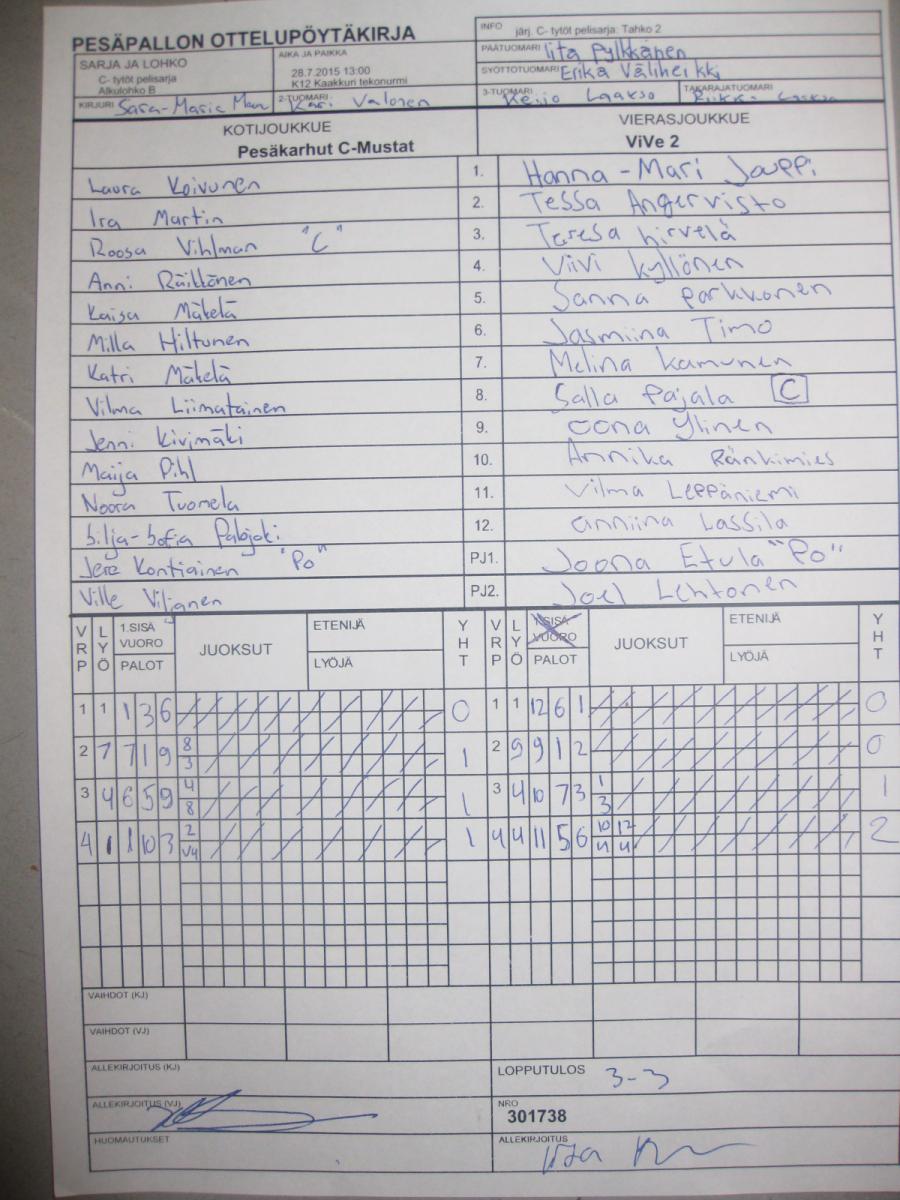 PESÄPALLON OTTELUPÖYTÄKIRJA
INFO järj. C- tytöt pelisarja: Tahko 2
PÄÄTUOMARI Iita Pylkkänen
SARJA JA LOHKO
C- tytöt pelisarja
Alkulohko B
AIKA JA PAIKKA
28.7.2015 13:00
K12 Kaakkuri tekonurmi
SYÖTTÖTUOMARI Erika Väliheikki
KIRJURI Sara-Maria
2-TUOMARI Kari Valonen
3-TUOMARI Keijo Laakso
TAKARAJATUOMARI
KOTIJOUKKUE
Pesäkarhut C-Mustat
VIERASJOUKKUE
ViVe 2
Laura Koivunen 1. Hanna-Mari Jouppi
Ira Martin 2. Tessa Angervisto
Roosa Vihlman "C" 3. Teresa hirvelä
Anni Räikkönen 4. Viivi kyllönen
Kaisa Mäkelä 5. Sanna parkkonen
Milla Hiltunen 6. Jasmiina Timo
Katri Mäkelä 7. Melina kamunen
Vilma Liimatainen 8. Salla Pajala C
Jenni Kivimäki 9. oona Ylinen
Maija Pihl 10. Annika Ränkimies
Noora Tuomela 11. Vilma Leppäniemi
12. anniina Lassila
Jere Kontiainen "Po" PJ1. Joona Etula "Po"
Ville Viljanen PJ2. Joel Lehtonen
VRP LYÖ 1.SISÄ VUORO PALOT JUOKSUT ETENIJÄ LYÖJÄ YHT VRP LYÖ 1.SISÄ VUORO PALOT JUOKSUT ETENIJÄ LYÖJÄ YHT
1 1 1 3 6 0 1 1 12 6 1 0
2 7 7 1 9 8 3 1 2 9 9 1 2 0
3 4 6 5 9 4 8 1 3 4 10 7 3 1 3 1
4 1 1 10 3 2 V4 1 4 4 11 5 6 10 12 4 4 2
VAIHDOT (KJ)
VAIHDOT (VJ)
ALLEKIRJOITUS (KJ)
LOPPUTULOS 3-3
ALLEKIRJOITUS (VJ)
NRO
301738
HUOMAUTUKSET
ALLEKIRJOITUS